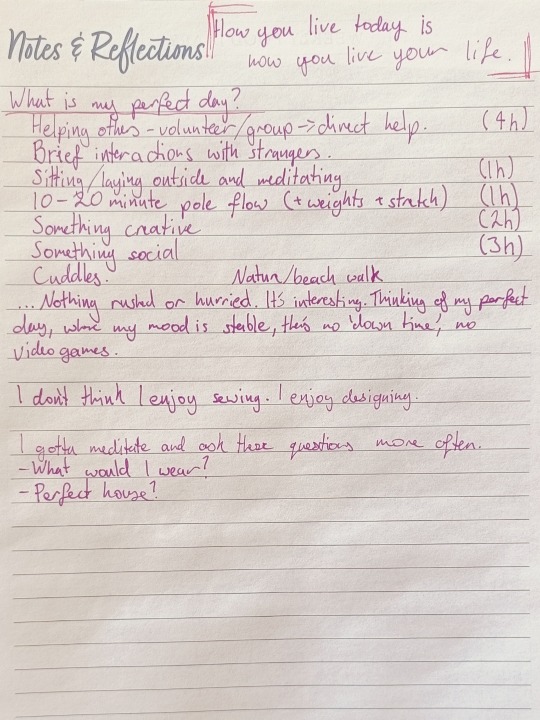 Notes & Reflections
How you live today is
how you live your life.
What is my perfect day?
Helping others - volunteer/group -> direct help. (4h)
Brief interactions with strangers.
Sitting/laying outside and meditating (1h)
10-20 minute pole flow (+ weights + stretch) (1h)
Something creative (2h)
Something social (3h)
Cuddles. Natur/beach walk
... Nothing rushed or hurried. It's interesting. Thinking of my perfect
day, where my mood is stable, there's no 'down time', no
video games.
I don't think I enjoy sewing. I enjoy designing.
I gotta meditate and ask these questions more often.
- What would I wear?
- Perfect house?